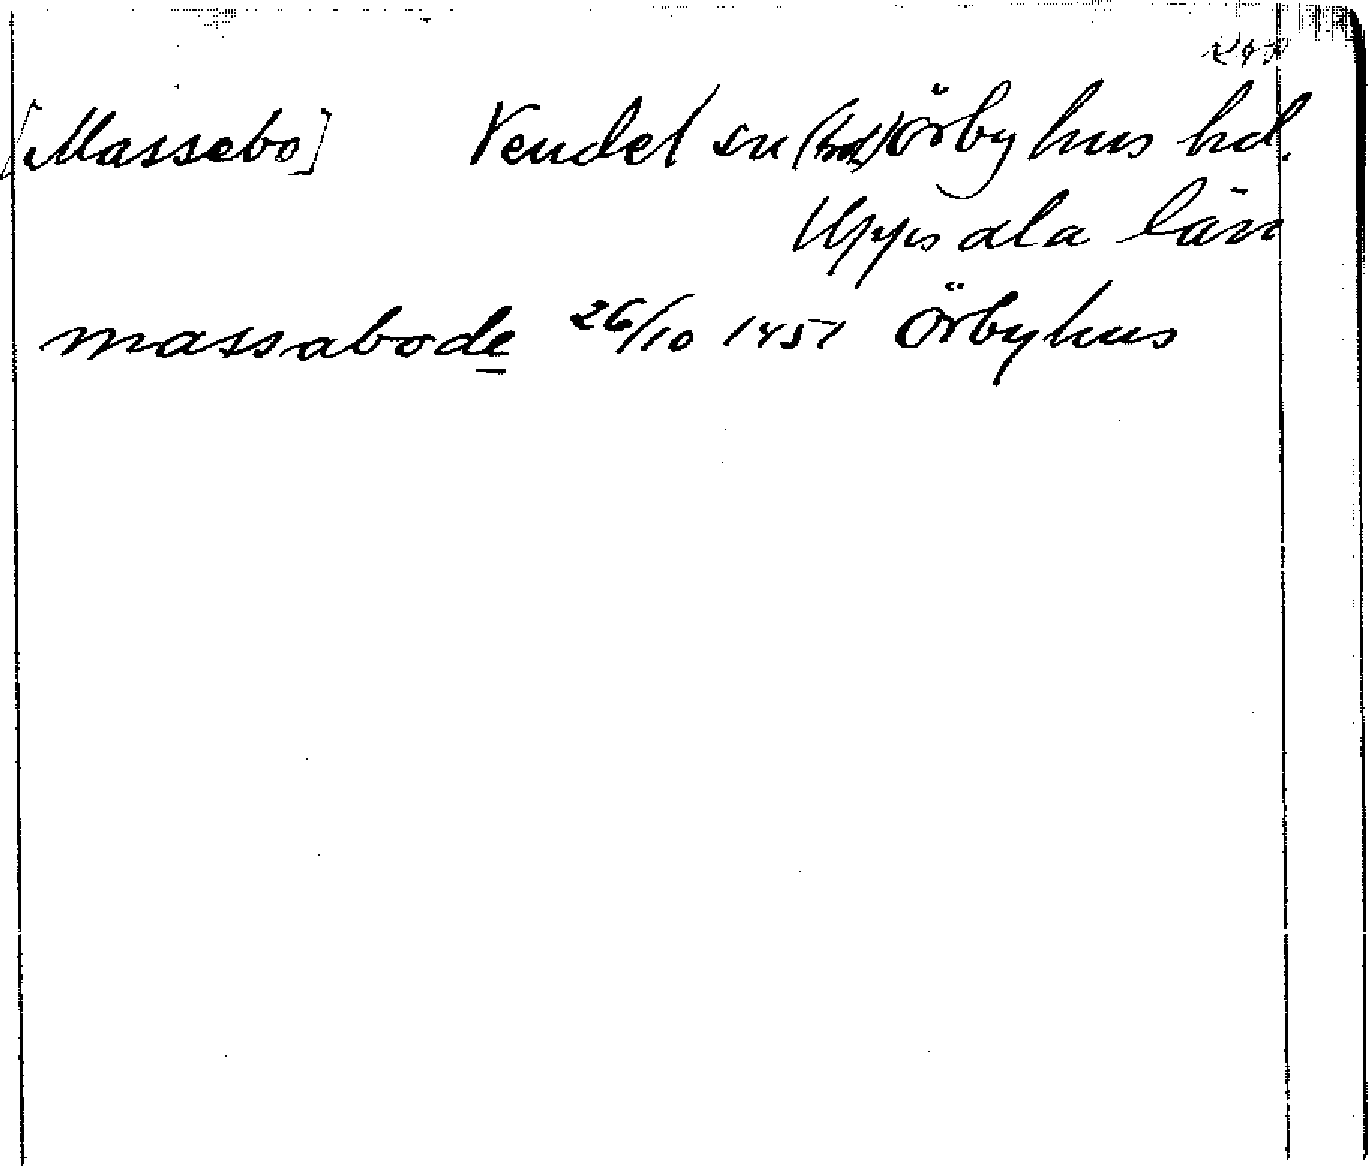 [Massebo] Vendel sn Örbyhus hd.
Uppsala län
massabode 26/10 1451 Örbyhus